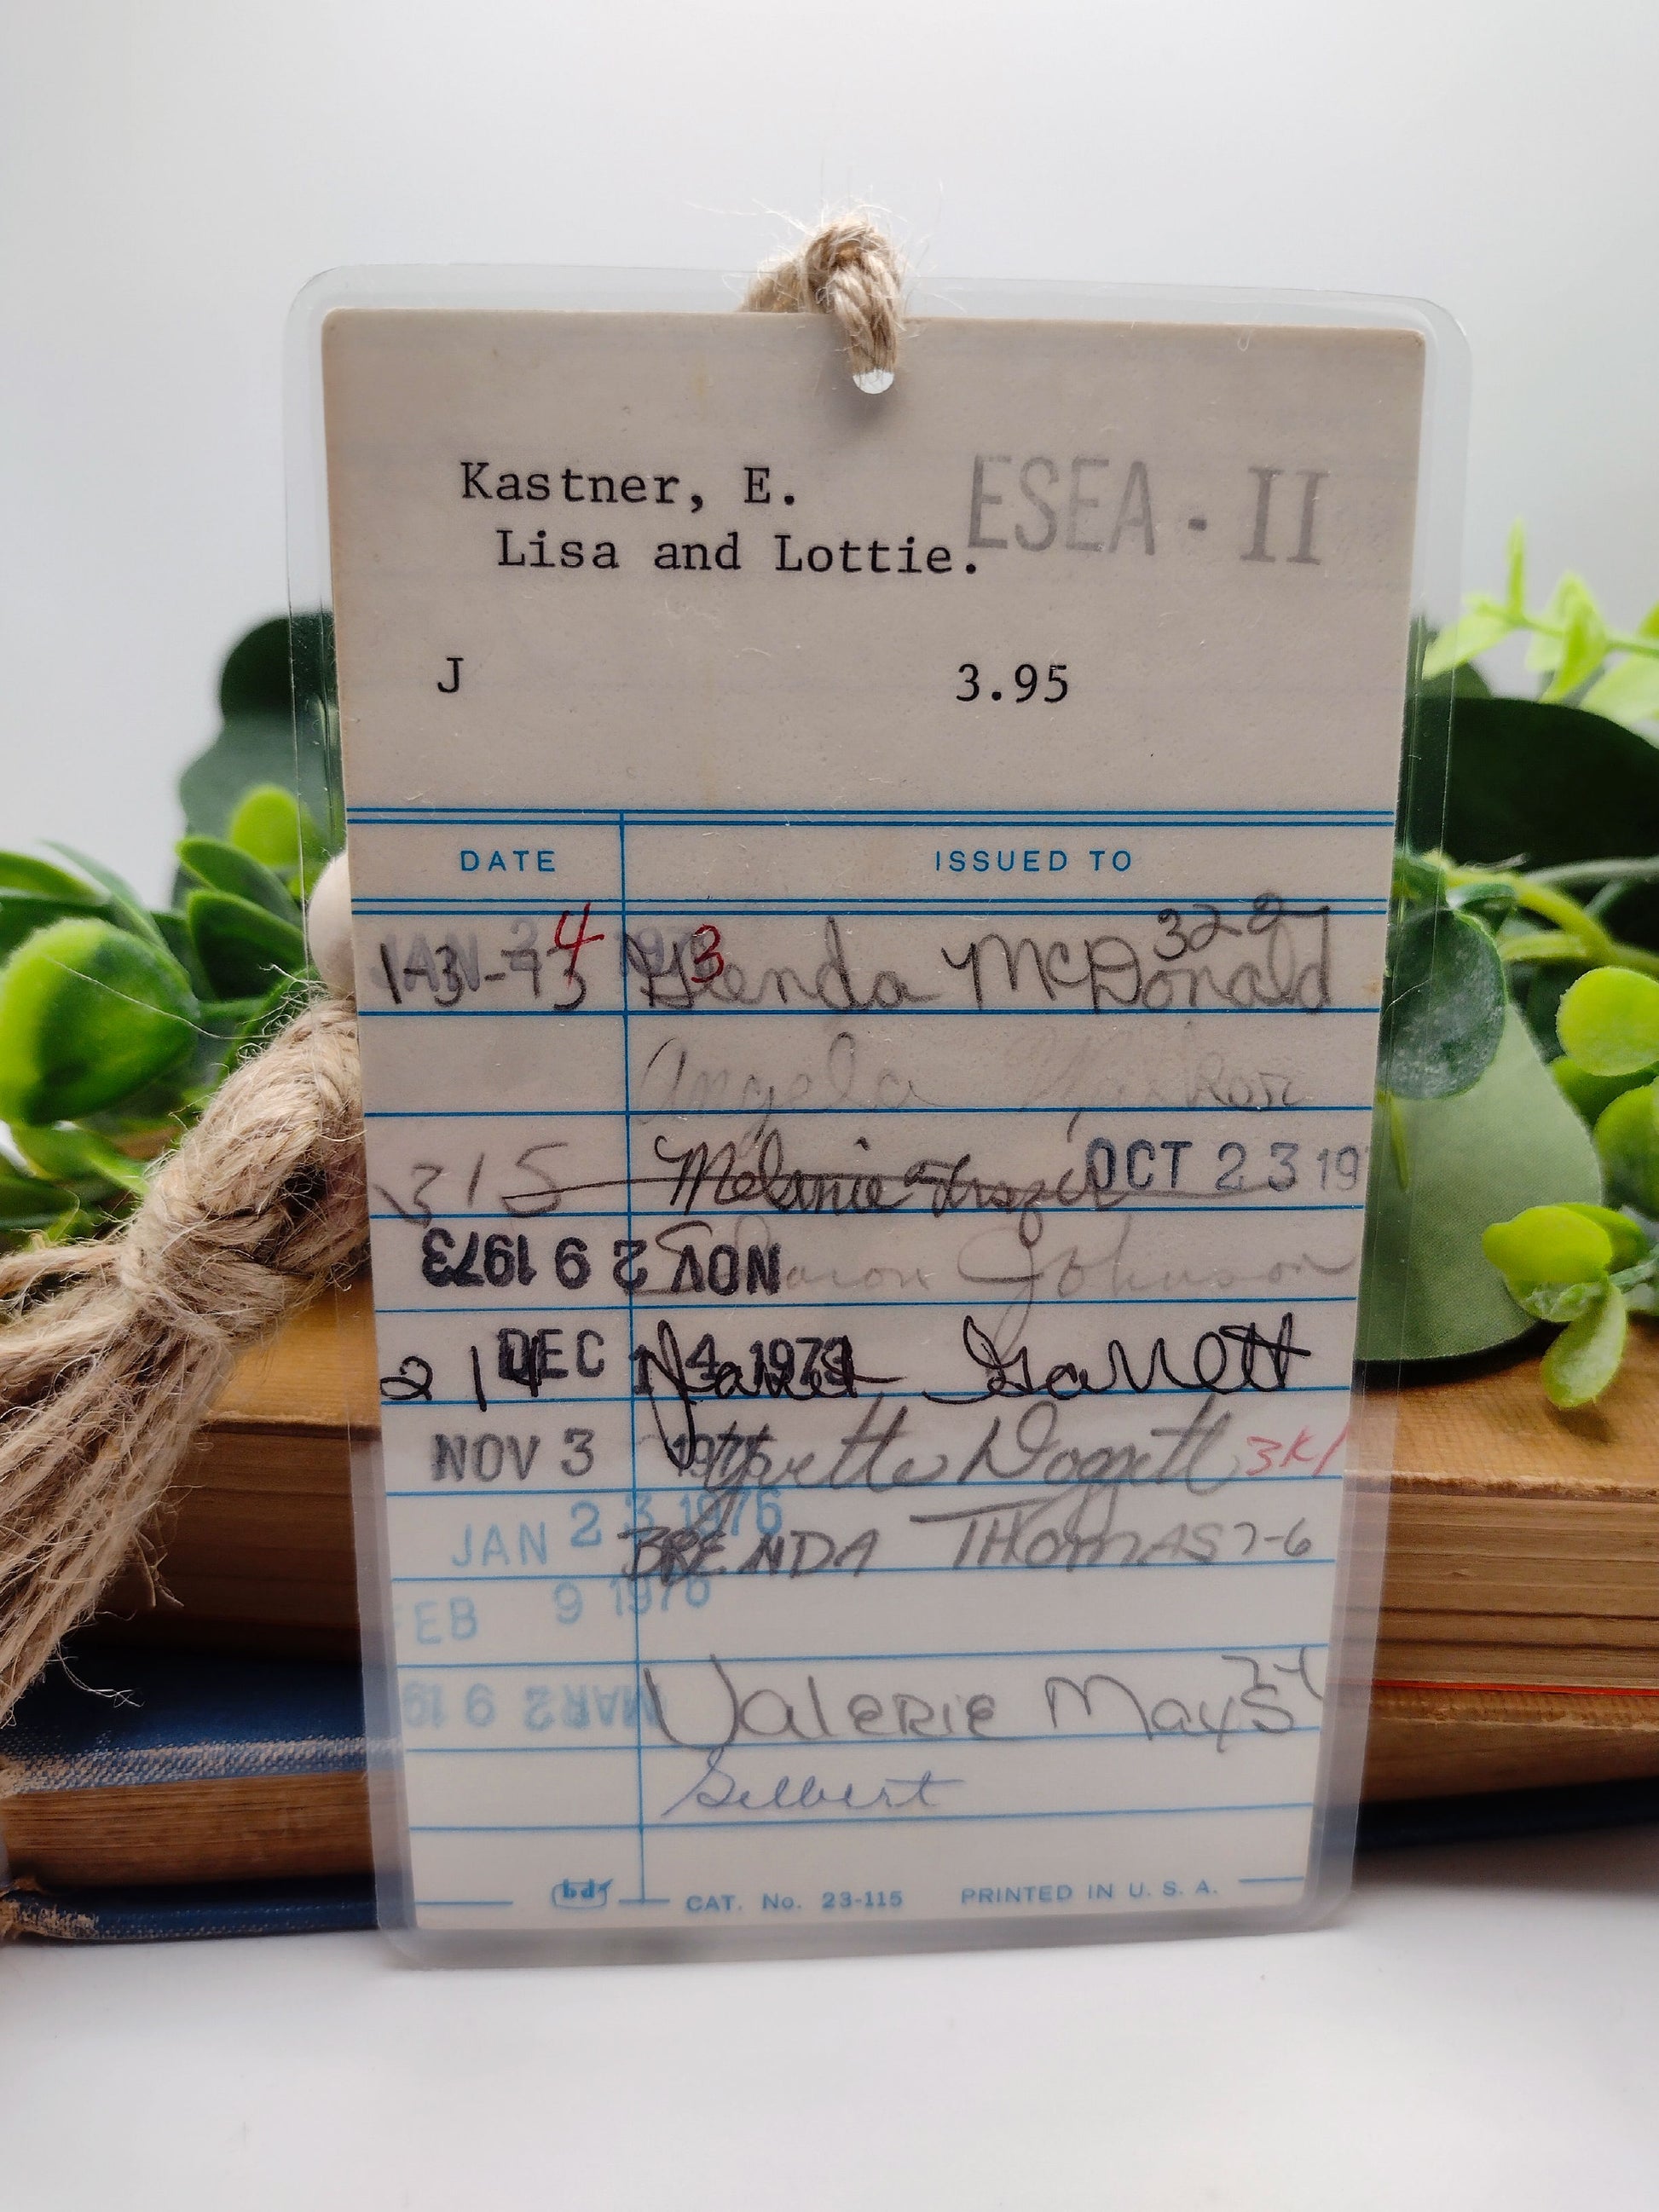 Kastner, E. ESEA - II
Lisa and Lottie.
J 3.95
DATE ISSUED TO
1-3-73 4 3 Glenda McDonald 322
Angela
315 Melanie Frazier OCT 23 19
NOV 29 1973 Johnson
214 DEC 14 1973 Janet Garrett
NOV 3 1975 Yvette Doggett 3K1
JAN 23 1976 BRENDA THOMAS 7-6
FEB 9 1976
MAR 29 19 Valerie Mays
Gilbert
bdi CAT. No. 23-115 PRINTED IN U. S. A.